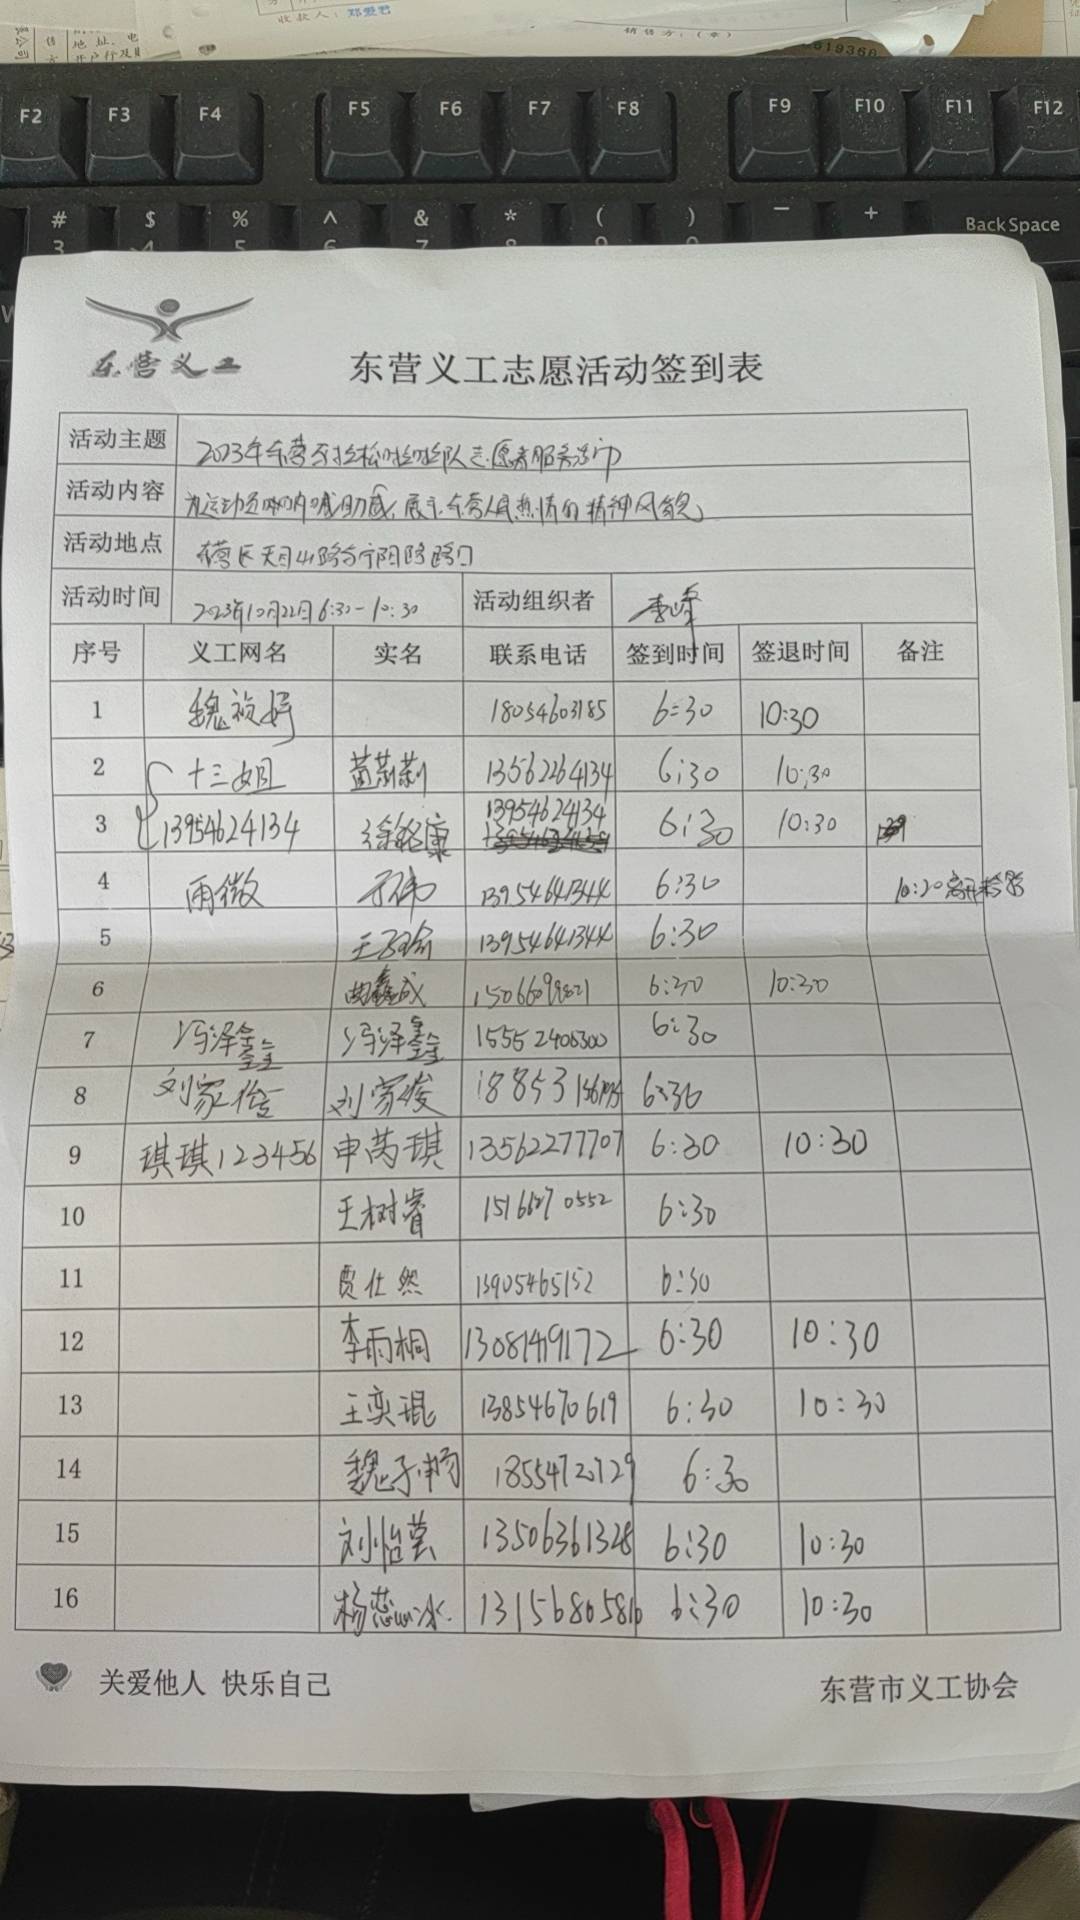 收款人：郑爱君
销售方：（章）
地址、电
开户行及账
F2 F3 F4 F5 F6 F7 F8 F9 F10 F11 F12
# $ % ^ & * ( ) — +
3 4 5 6 7 8 9 0
Back Space
东营义工
东营义工志愿活动签到表
活动主题 2023年东营马拉松啦啦队志愿者服务活动
活动内容 为运动员呐喊助威、展示东营人民热情的精神风貌
活动地点 东营区天目山路与宁阳路路口
活动时间 2023年10月22日 6:30-10:30 活动组织者 李峰
序号 义工网名 实名 联系电话 签到时间 签退时间 备注
1 魏祯婷 18054603185 6:30 10:30
2 十三姐 13562264134 6:30 10:30
3 13954624134 徐铭康 13954624134 6:30 10:30
4 雨微 于伟 13954641344 6:30 10:20
5 13954641344 6:30
6 曲鑫成 6:30 10:30
7 冯泽鑫 冯泽鑫 15552406300 6:30
8 刘家俊 刘家俊 6:30
9 琪琪123456 申芮琪 13562277707 6:30 10:30
10 王树睿 6:30
11 贾仕然 13905465152 6:30
12 李雨桐 6:30 10:30
13 王奕琨 13854670619 6:30 10:30
14 魏子畅 18554720729 6:30
15 刘怡芸 13506361328 6:30 10:30
16 杨蕊冰 13156805816 6:30 10:30
关爱他人 快乐自己
东营市义工协会